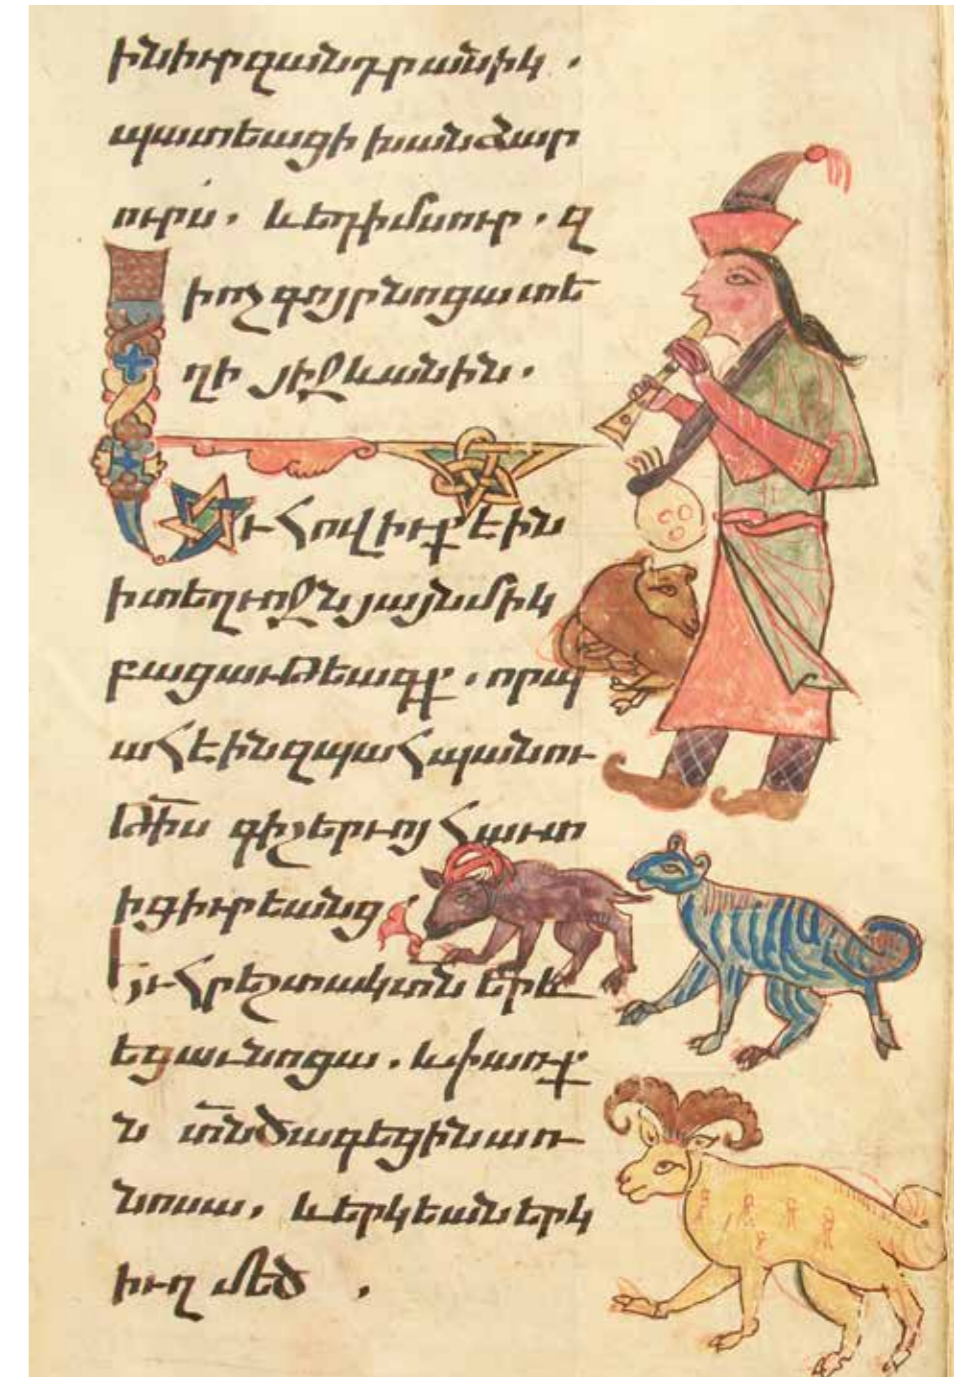 ինիւր զանդրանիկ .
պատեաց ի խանձար
ուրս . և եդ ի մսուր . զ
ի ոչ գոյր նոցա տե
ղի յիջևանին .
Եւ հովիւք էին
ի տեղւոջն յայնմիկ
բացաւթեագք . որ պ
ահէին զպահպանու
թիս գիշերւոյ հաւտ
ից իւրեանց .
Եւ հրեշտակ տն երև
եցաւ նոցա . և փառք
ն տն ծագեցին առ
նոսա . և երկեան երկ
իւղ մեծ .